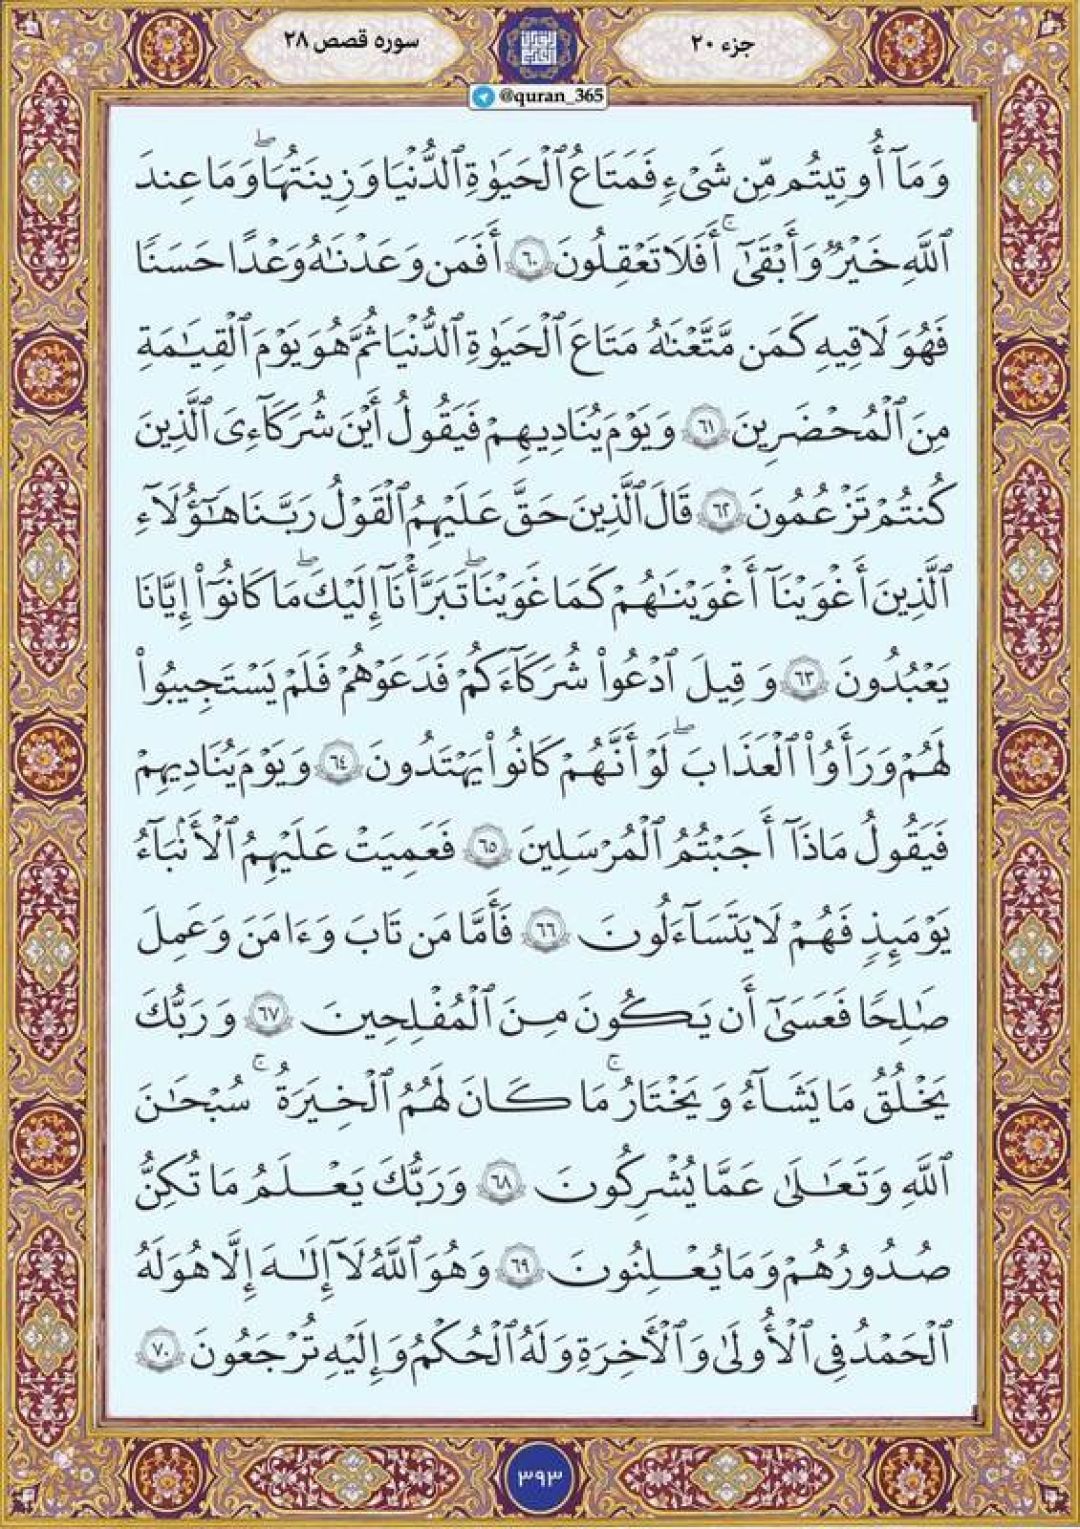 جزء ۲۰
سوره قصص ۲۸
@quran_365
وَمَآ أُوتِيتُم مِّن شَىْءٍ فَمَتَاعُ ٱلْحَيَوٰةِ ٱلدُّنْيَا وَزِينَتُهَا ۖ وَمَا عِندَ
ٱللَّهِ خَيْرٌ وَأَبْقَىٰٓ ۚ أَفَلَا تَعْقِلُونَ ۶۰ أَفَمَن وَعَدْنَـٰهُ وَعْدًا حَسَنًا
فَهُوَ لَـٰقِيهِ كَمَن مَّتَّعْنَـٰهُ مَتَاعَ ٱلْحَيَوٰةِ ٱلدُّنْيَا ثُمَّ هُوَ يَوْمَ ٱلْقِيَـٰمَةِ
مِنَ ٱلْمُحْضَرِينَ ۶۱ وَيَوْمَ يُنَادِيهِمْ فَيَقُولُ أَيْنَ شُرَكَآءِىَ ٱلَّذِينَ
كُنتُمْ تَزْعُمُونَ ۶۲ قَالَ ٱلَّذِينَ حَقَّ عَلَيْهِمُ ٱلْقَوْلُ رَبَّنَا هَـٰٓؤُلَآءِ
ٱلَّذِينَ أَغْوَيْنَآ أَغْوَيْنَـٰهُمْ كَمَا غَوَيْنَا ۖ تَبَرَّأْنَآ إِلَيْكَ ۖ مَا كَانُوٓا۟ إِيَّانَا
يَعْبُدُونَ ۶۳ وَقِيلَ ٱدْعُوا۟ شُرَكَآءَكُمْ فَدَعَوْهُمْ فَلَمْ يَسْتَجِيبُوا۟
لَهُمْ وَرَأَوُا۟ ٱلْعَذَابَ ۖ لَوْ أَنَّهُمْ كَانُوا۟ يَهْتَدُونَ ۶۴ وَيَوْمَ يُنَادِيهِمْ
فَيَقُولُ مَاذَآ أَجَبْتُمُ ٱلْمُرْسَلِينَ ۶۵ فَعَمِيَتْ عَلَيْهِمُ ٱلْأَنۢبَآءُ
يَوْمَئِذٍ فَهُمْ لَا يَتَسَآءَلُونَ ۶۶ فَأَمَّا مَن تَابَ وَءَامَنَ وَعَمِلَ
صَـٰلِحًا فَعَسَىٰٓ أَن يَكُونَ مِنَ ٱلْمُفْلِحِينَ ۶۷ وَرَبُّكَ
يَخْلُقُ مَا يَشَآءُ وَيَخْتَارُ ۚ مَا كَانَ لَهُمُ ٱلْخِيَرَةُ ۚ سُبْحَـٰنَ
ٱللَّهِ وَتَعَـٰلَىٰ عَمَّا يُشْرِكُونَ ۶۸ وَرَبُّكَ يَعْلَمُ مَا تُكِنُّ
صُدُورُهُمْ وَمَا يُعْلِنُونَ ۶۹ وَهُوَ ٱللَّهُ لَآ إِلَـٰهَ إِلَّا هُوَ ۖ لَهُ
ٱلْحَمْدُ فِى ٱلْأُولَىٰ وَٱلْـَٔاخِرَةِ وَلَهُ ٱلْحُكْمُ وَإِلَيْهِ تُرْجَعُونَ ۷۰
۳۹۳